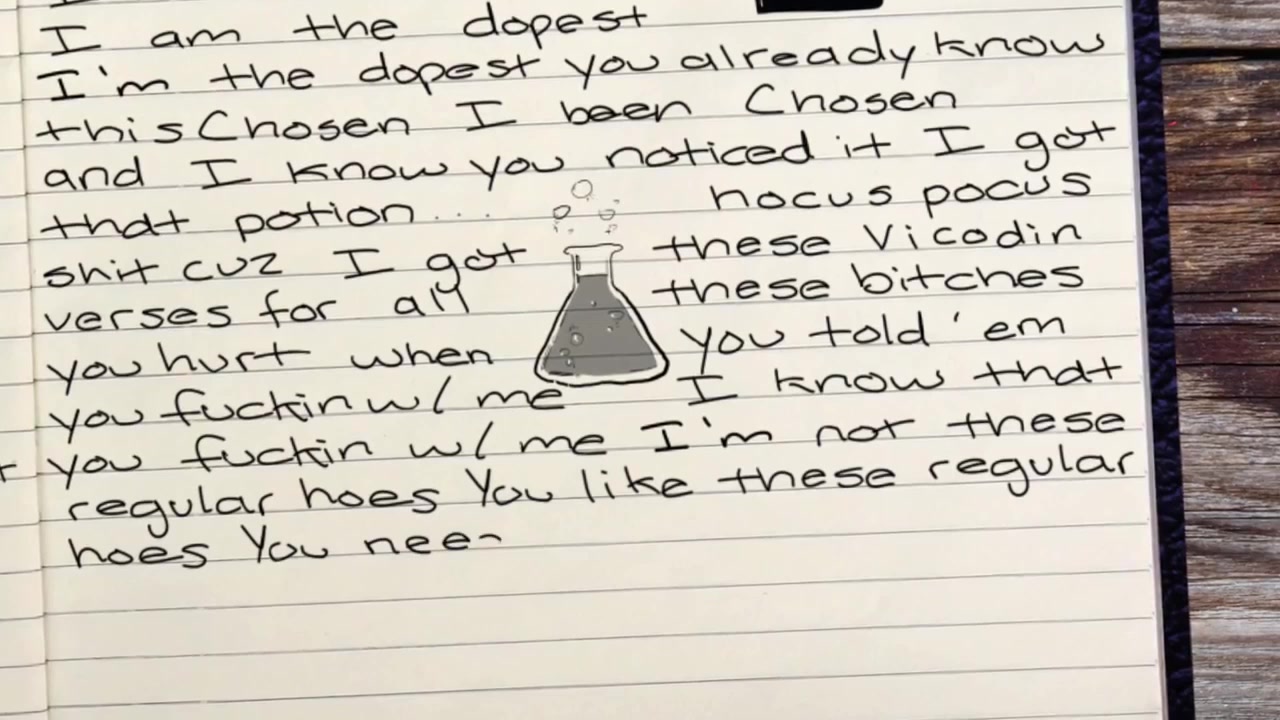 I am the dopest
I'm the dopest you already know
this Chosen I been Chosen
and I know you noticed it I got
that potion.... hocus pocus
shit cuz I got these Vicodin
verses for all these bitches
you hurt when you told 'em
you fuckin w/ me I know that
you fuckin w/ me I'm not these
regular hoes You like these regular
hoes You nee